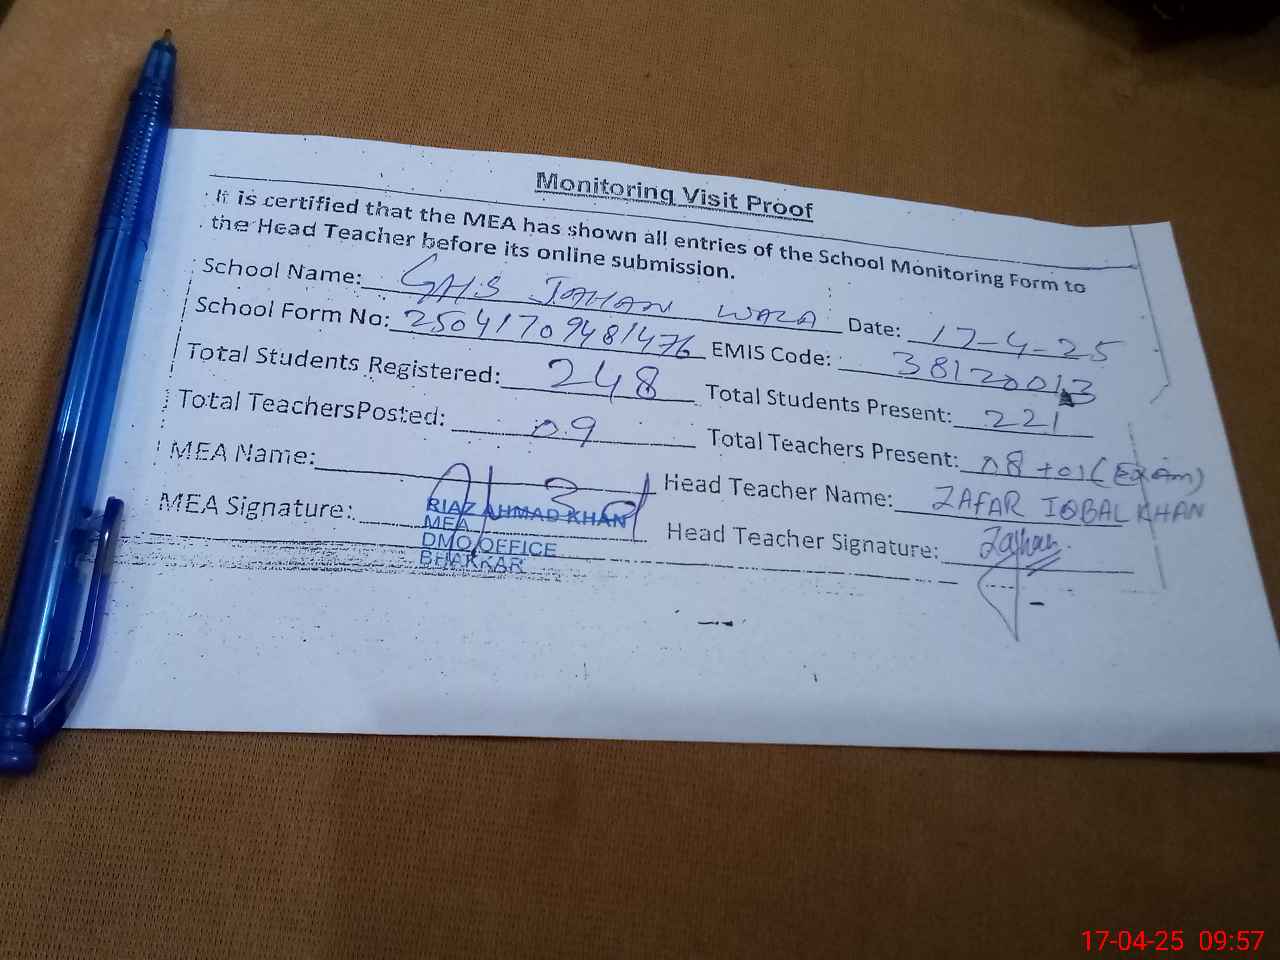 Monitoring Visit Proof
It is certified that the MEA has shown all entries of the School Monitoring Form to
the Head Teacher before its online submission.
School Name: GHS JAHAN WALA Date: 17-4-25
School Form No: 25041709481476 EMIS Code: 38120013
Total Students Registered: 248 Total Students Present: 221
Total TeachersPosted: 09 Total Teachers Present: 08 +01 (Exam)
MEA Name: Head Teacher Name: ZAFAR IQBAL KHAN
MEA Signature: Head Teacher Signature:
RIAZ AHMAD KHAN
MEA
DMO OFFICE
BHAKKAR
17-04-25 09:57